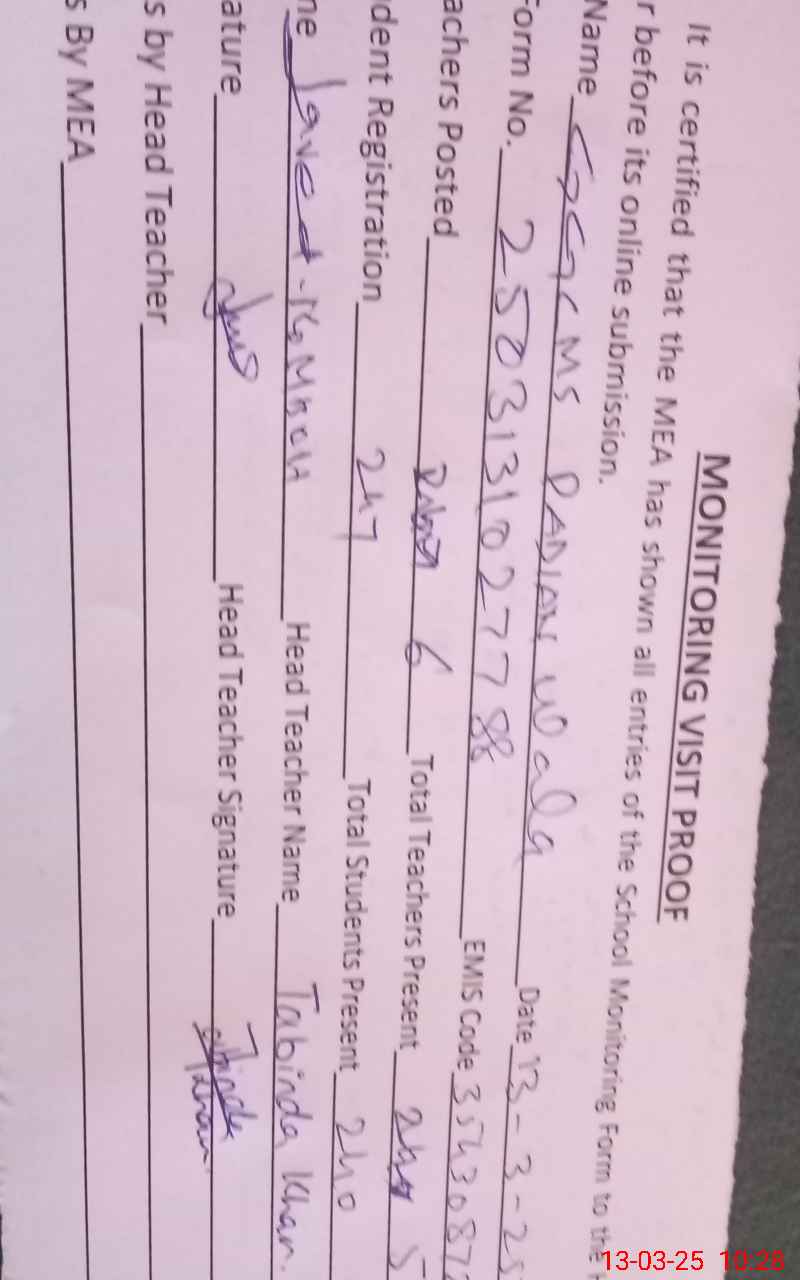 MONITORING VISIT PROOF
It is certified that the MEA has shown all entries of the School Monitoring Form to the
r before its online submission.
Name GGCMS PADIAN Wala Date 13-3-25
Form No. 2503131027788 EMIS Code 3543087
achers Posted 6 Total Teachers Present 5
dent Registration 247 Total Students Present 240
me Javed Head Teacher Name Tabinda Khan.
ature Head Teacher Signature Tabinda Khan
s by Head Teacher
s By MEA
13-03-25 10:28